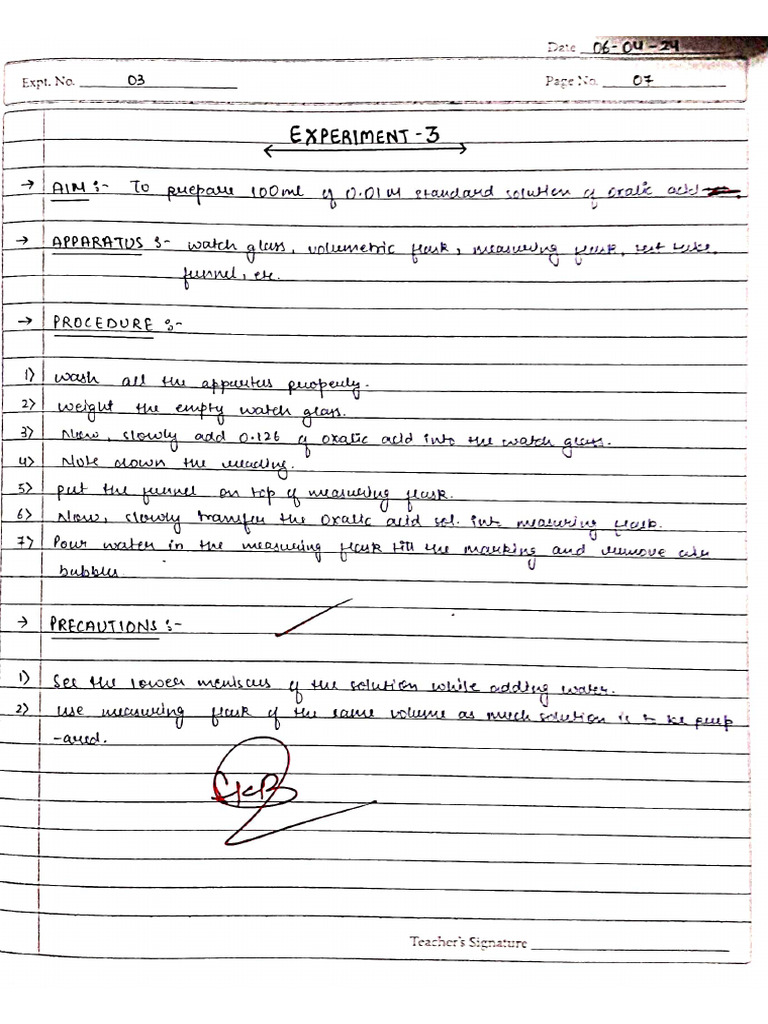 Date 06-04-24
Expt. No. 03 Page No. 07
EXPERIMENT-3
→ AIM :- To prepare 100ml of 0.01M standard solution of oxalic acid
→ APPARATUS :- watch glass, volumetric flask, measuring flask, test tube,
funnel, etc.
→ PROCEDURE :-
1) wash all the apparatus properly.
2) weight the empty watch glass.
3) Now, slowly add 0.126 g oxalic acid into the watch glass.
4) Note down the reading.
5) put the funnel on top of measuring flask.
6) Now, slowly transfer the oxalic acid sol. into measuring flask.
7) Pour water in the measuring flask till the marking and remove air
bubbles
→ PRECAUTIONS :-
1) See the lower meniscus of the solution while adding water.
2) Use measuring flask of the same volume as much solution is to be prep
-ared.
Teacher's Signature